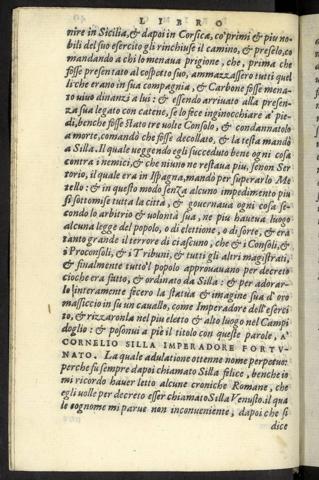 LIBRO
nire in Sicilia, & dapoi in Corsica, co' primi & piu no-
bili del suo esercito gli rinchiuse il camino, & preselo, co
mandando a chi lo menaua prigione, che, prima che
fosse presentato al cospetto suo, ammazzassero tutti quel
li che erano in sua compagnia, & Carbone fosse mena-
to uiuo dinanzi a lui: & essendo arriuato alla presen-
za sua legato con catene, se lo fece inginocchiare a' pie-
di, benche fosse stato tre uolte Consolo, & condannatolo
a morte, comandò che fosse decollato, & la testa mandò
a Silla. Il quale ueggendo egli succeduto bene ogni cosa
contra i nemici, & che niuno ne restaua piu, senon Ser
torio, il quale era in Ispagna, mandò per superarlo Me
tello: & in questo modo senza alcuno impedimento piu
si sottomise tutta la città, & gouernaua ogni cosa se-
condo lo arbitrio & uolontà sua, ne piu haueua luogo
alcuna legge del popolo, o di elettione, o di sorte, & era
tanto grande il terrore di ciascuno, che & i Consoli, &
i Proconsoli, & i Tribuni, & tutti gli altri magistrati,
& finalmente tutto'l popolo approuauano per decreto
ciò che era fatto, & ordinato da Silla: & per adorar-
lo interamente fecero la statua & imagine sua d'oro
massiccio in su un cauallo, come Imperadore dell'eserci
to, & rizzaronla nel piu eletto & alto luogo nel Campi
doglio: & posonui a piè il titolo con queste parole, A'
CORNELIO SILLA IMPERADORE FORTV-
NATO. La quale adulatione ottenne nome perpetuo:
perche fu sempre dapoi chiamato Silla felice, benche io
mi ricordo hauer letto alcune croniche Romane, che
egli uolle per decreto esser chiamato Silla Venusto. il qua
le cognome mi parue non inconueniente, dapoi che si
dice